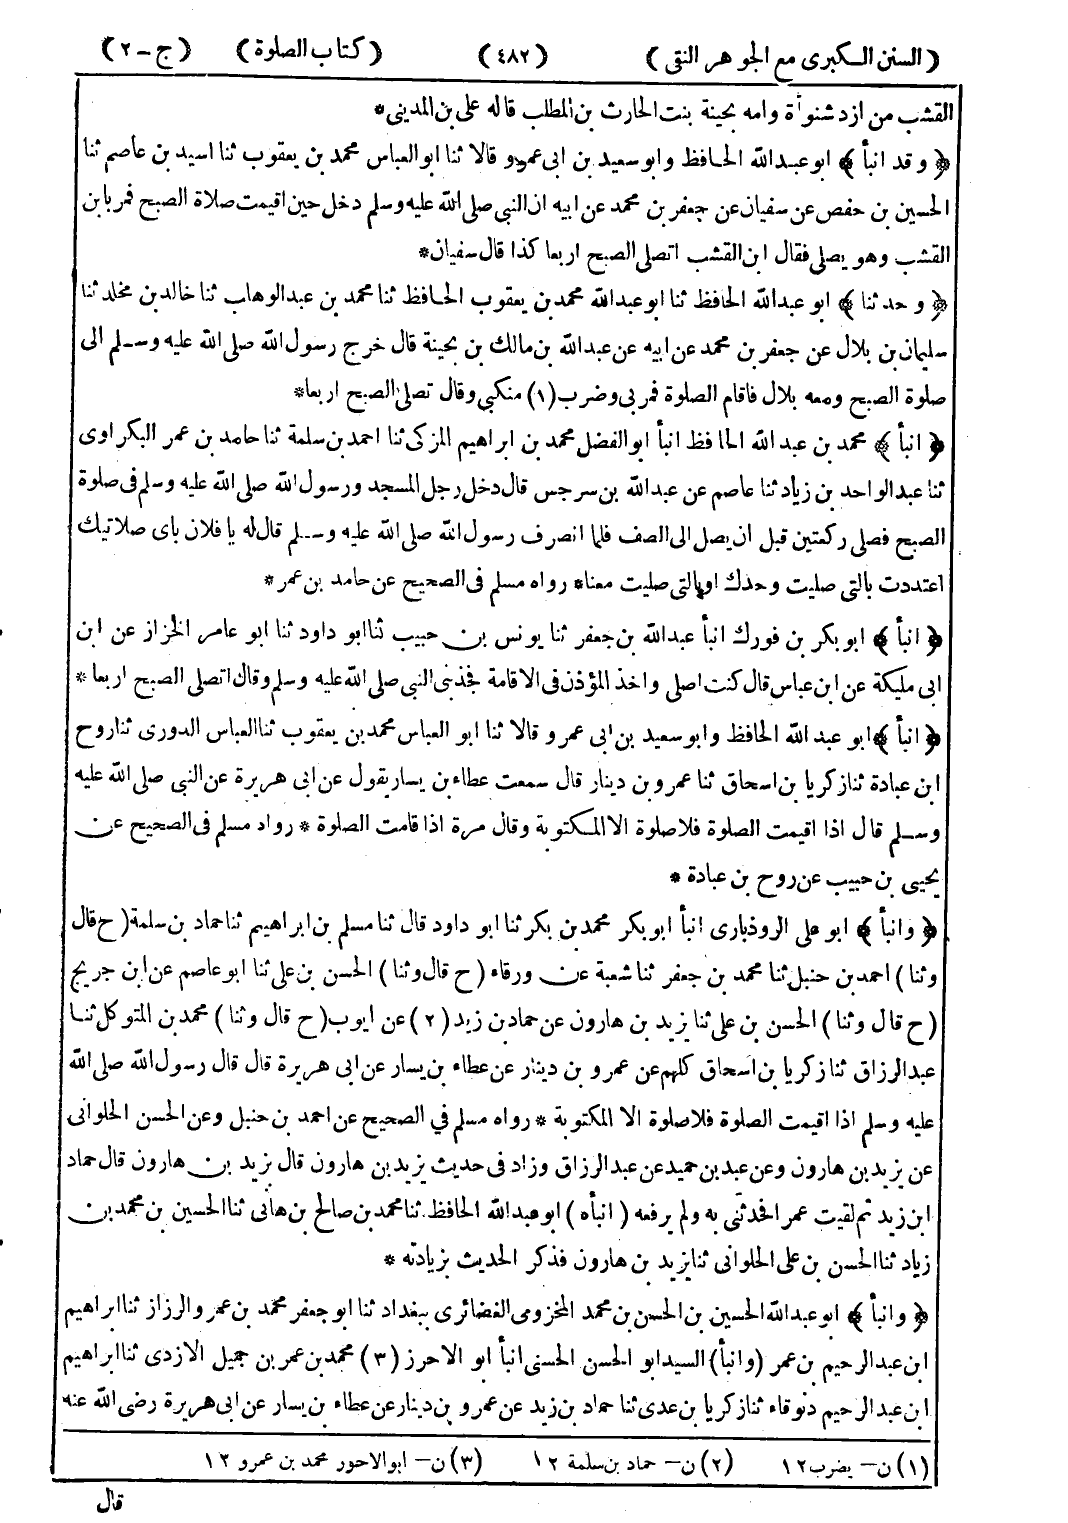 (السنن الكبرى مع الجوهر النقى) (٤٨٢) (كتاب الصلوة) (ج-٢)
القشب من ازد شنوأة وامه بحينة بنت الحارث بن المطلب قاله على بن المدينى*
﴿وقد انبأ﴾ ابو عبد الله الحافظ وابو سعيد بن ابى عمرو قالا ثنا ابو العباس محمد بن يعقوب ثنا اسيد بن عاصم ثنا
الحسين بن حفص عن سفيان عن جعفر بن محمد عن ابيه ان النبى صلى الله عليه وسلم دخل حين اقيمت صلاة الصبح فمر بابن
القشب وهو يصلى فقال ابن القشب اتصلى الصبح اربعا كذا قال سفيان*
﴿وحدثنا﴾ ابو عبد الله الحافظ ثنا ابو عبد الله محمد بن يعقوب الحافظ ثنا محمد بن عبد الوهاب ثنا خالد بن مخلد ثنا
سليمان بن بلال عن جعفر بن محمد عن ابيه عن عبد الله بن مالك بن بحينة قال خرج رسول الله صلى الله عليه وسلم الى
صلوة الصبح ومعه بلال فاقام الصلوة فمر بى وضرب (١) منكبى وقال تصلى الصبح اربعا*
﴿انبأ﴾ محمد بن عبد الله الحافظ انبأ ابو الفضل محمد بن ابراهيم المزكى ثنا احمد بن سلمة ثنا حامد بن عمر البكراوى
ثنا عبد الواحد بن زياد ثنا عاصم عن عبد الله بن سرجس قال دخل رجل المسجد ورسول الله صلى الله عليه وسلم فى صلوة
الصبح فصلى ركعتين قبل ان يصل الى الصف فلما انصرف رسول الله صلى الله عليه وسلم قال له يا فلان باى صلاتيك
اعتددت بالتى صليت وحدك او بالتى صليت معنا* رواه مسلم فى الصحيح عن حامد بن عمر*
﴿انبأ﴾ ابو بكر بن فورك انبأ عبد الله بن جعفر ثنا يونس بن حبيب ثنا ابو داود ثنا ابو عامر الخزاز عن ابن
ابى مليكة عن ابن عباس قال كنت اصلى واخذ المؤذن فى الاقامة فجذبنى النبى صلى الله عليه وسلم وقال اتصلى الصبح اربعا*
﴿انبأ﴾ ابو عبد الله الحافظ وابو سعيد بن ابى عمرو قالا ثنا ابو العباس محمد بن يعقوب ثنا العباس الدورى ثنا روح
ابن عبادة ثنا زكريا بن اسحاق ثنا عمرو بن دينار قال سمعت عطاء بن يسار يقول عن ابى هريرة عن النبى صلى الله عليه
وسلم قال اذا اقيمت الصلوة فلا صلوة الا المكتوبة وقال مرة اذا قامت الصلوة* رواه مسلم فى الصحيح عن
يحيى بن حبيب عن روح بن عبادة*
﴿وانبأ﴾ ابو على الروذبارى انبأ ابو بكر محمد بن بكر ثنا ابو داود قال ثنا مسلم بن ابراهيم ثنا حماد بن سلمة (ح قال
وثنا) احمد بن حنبل ثنا محمد بن جعفر ثنا شعبة عن ورقاء (ح قال وثنا) الحسن بن على ثنا ابو عاصم عن ابن جريج
(ح قال وثنا) الحسن بن على ثنا يزيد بن هارون عن حماد بن زيد (٢) عن ايوب (ح قال وثنا) محمد بن المتوكل ثنا
عبد الرزاق ثنا زكريا بن اسحاق كلهم عن عمرو بن دينار عن عطاء بن يسار عن ابى هريرة قال قال رسول الله صلى الله
عليه وسلم اذا اقيمت الصلوة فلا صلوة الا المكتوبة* رواه مسلم في الصحيح عن احمد بن حنبل وعن الحسن الحلوانى
عن يزيد بن هارون وعن عبد بن حميد عن عبد الرزاق وزاد فى حديث يزيد بن هارون قال يزيد بن هارون قال حماد
ابن زيد ثم لقيت عمرا فحدثنى به ولم يرفعه (انبأه) ابو عبد الله الحافظ ثنا محمد بن صالح بن هانى ثنا الحسين بن محمد بن
زياد ثنا الحسن بن على الحلوانى ثنا يزيد بن هارون فذكر الحديث بزيادته*
﴿وانبأ﴾ ابو عبد الله الحسين بن الحسن بن محمد المخزومى الغضائرى ببغداد ثنا ابو جعفر محمد بن عمرو الرزاز ثنا ابراهيم
ابن عبد الرحيم بن عمر (وانبأ) السيد ابو الحسن الحسنى انبأ ابو الاحرز (٣) محمد بن عمر بن جميل الازدى ثنا ابراهيم
ابن عبد الرحيم دنوقاء ثنا زكريا بن عدى ثنا حماد بن زيد عن عمرو بن دينار عن عطاء بن يسار عن ابى هريرة رضى الله عنه
(١) ن- يضرب ١٢ (٢) ن- حماد بن سلمة ١٢ (٣) ن- ابو الاحور محمد بن عمرو ١٢
قال